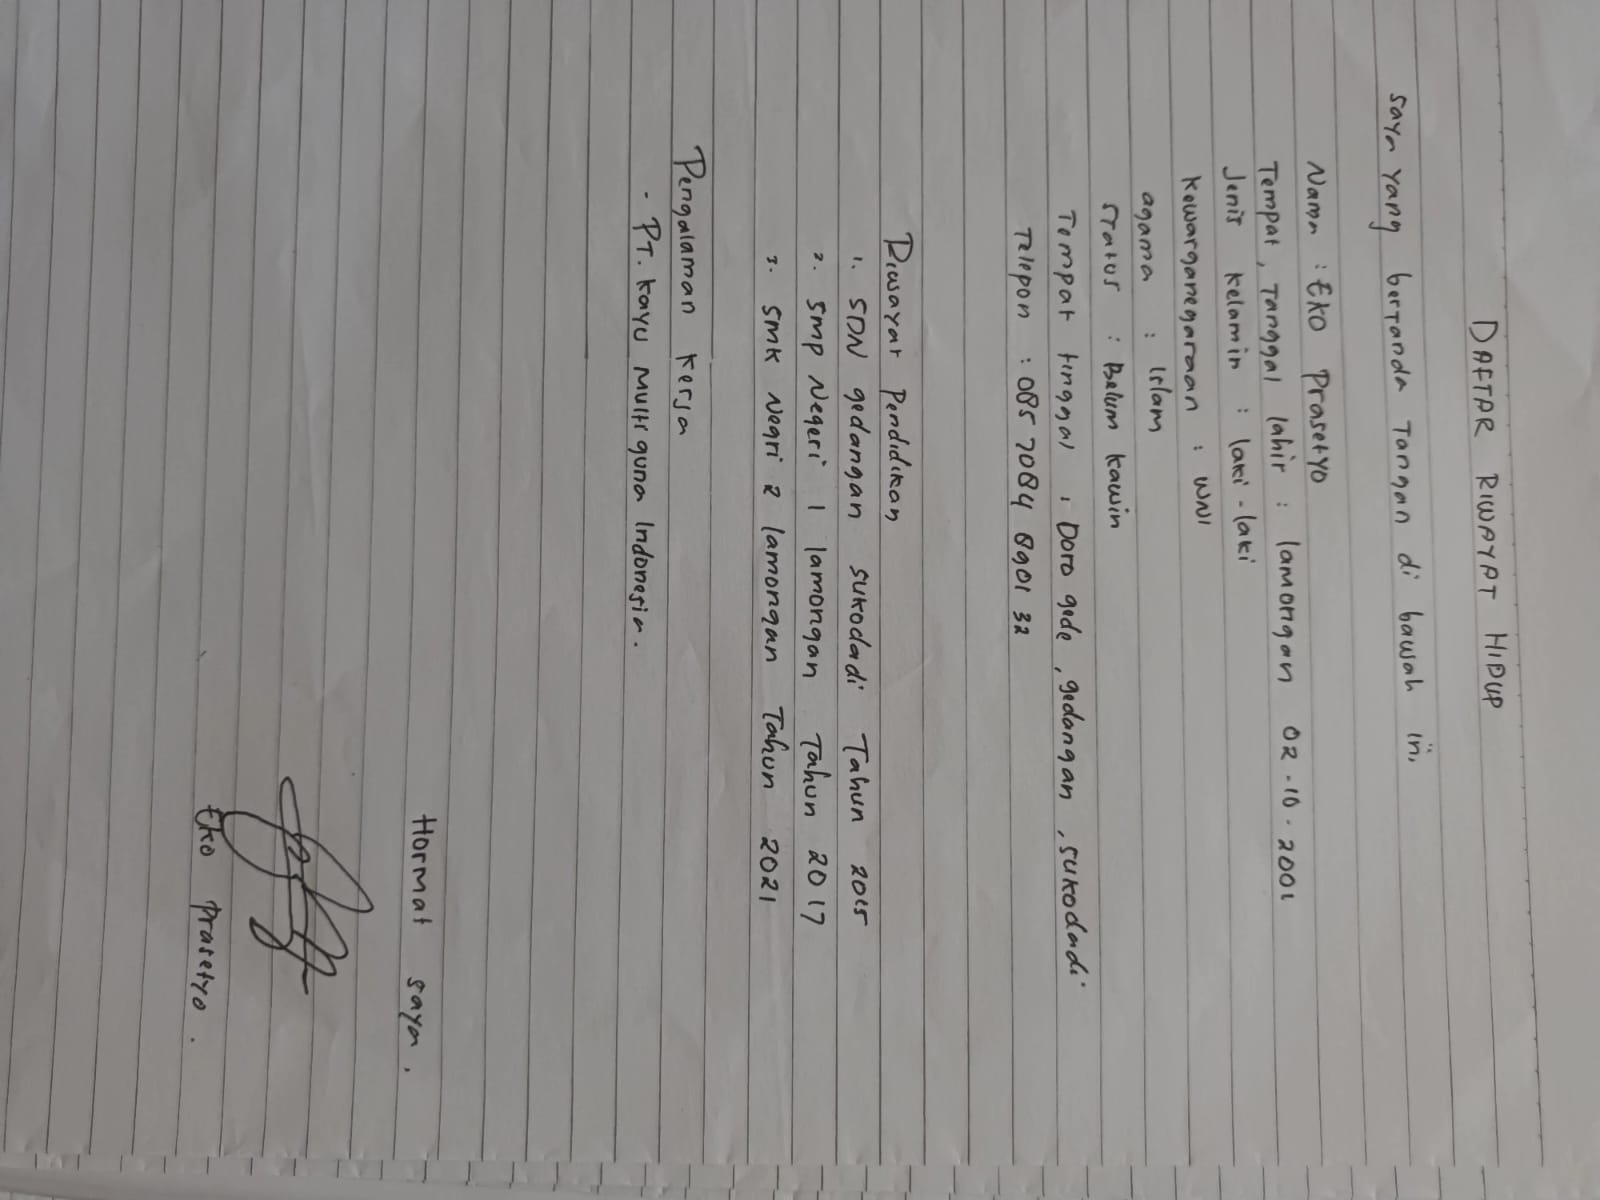 DAFTAR RIWAYAT HIDUP
saya yang bertanda Tangan di bawah ini,
Nama : Eko Prasetyo
Tempat, Tanggal lahir : lamongan 02-10-2001
Jenis kelamin : laki-laki
kewarganegaraan : WNI
agama : Islam
Status : Belum kawin
Tempat tinggal : Doro gede, gedangan, sukodadi
Telepon : 085 7084 8901 32
Riwayat Pendidikan
1. SDN gedangan sukodadi Tahun 2015
2. smp Negeri 1 lamongan Tahun 2017
3. SMK Negri 2 lamongan Tahun 2021
Pengalaman kerja
- PT. kayu Multi guna Indonesia.
Hormat saya,
Eko prasetyo.